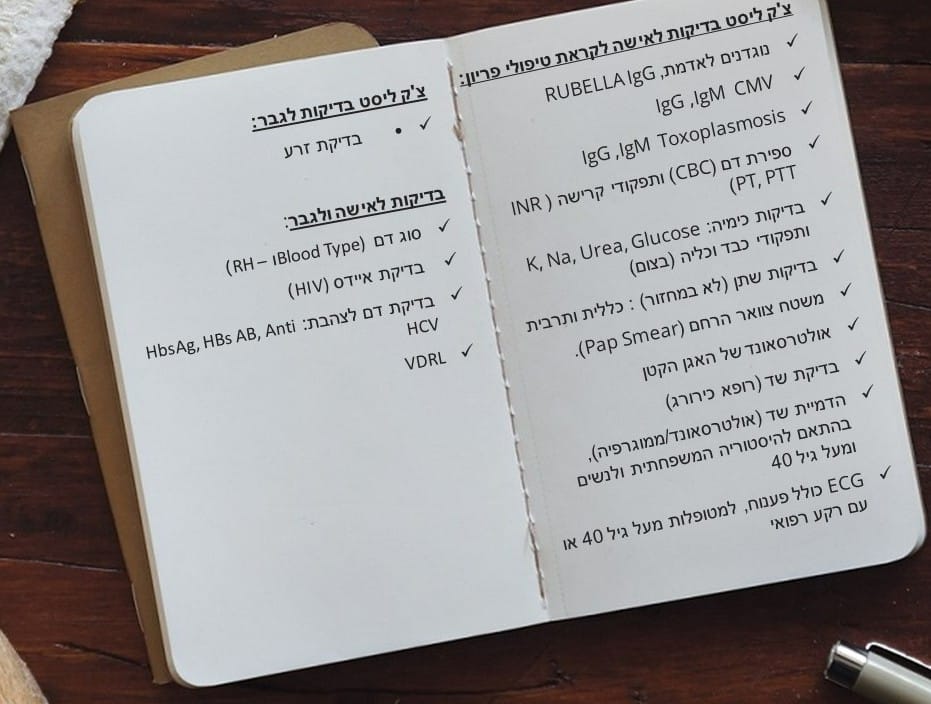 צ'ק ליסט בדיקות לאישה לקראת טיפולי פריון:
✓ נוגדנים לאדמת, RUBELLA IgG
✓ IgG ,IgM CMV
✓ IgG ,IgM Toxoplasmosis
✓ ספירת דם (CBC) ותפקודי קרישה ( INR
PT, PTT)
✓ בדיקות כימיה: K, Na, Urea, Glucose
ותפקודי כבד וכליה (בצום)
✓ בדיקות שתן (לא במחזור) : כללית ותרבית
✓ משטח צוואר הרחם (Pap Smear).
✓ אולטרסאונד של האגן הקטן
✓ בדיקת שד (רופא כירורג)
✓ הדמיית שד (אולטרסאונד/ממוגרפיה),
בהתאם להיסטוריה המשפחתית ולנשים
ומעל גיל 40
✓ ECG כולל פענוח, למטופלות מעל גיל 40 או
עם רקע רפואי
צ'ק ליסט בדיקות לגבר:
✓ • בדיקת זרע
בדיקות לאישה ולגבר:
✓ סוג דם (Blood Typeו – RH)
✓ בדיקת איידס (HIV)
✓ בדיקת דם לצהבת: HbsAg, HBs AB, Anti
HCV
✓ VDRL